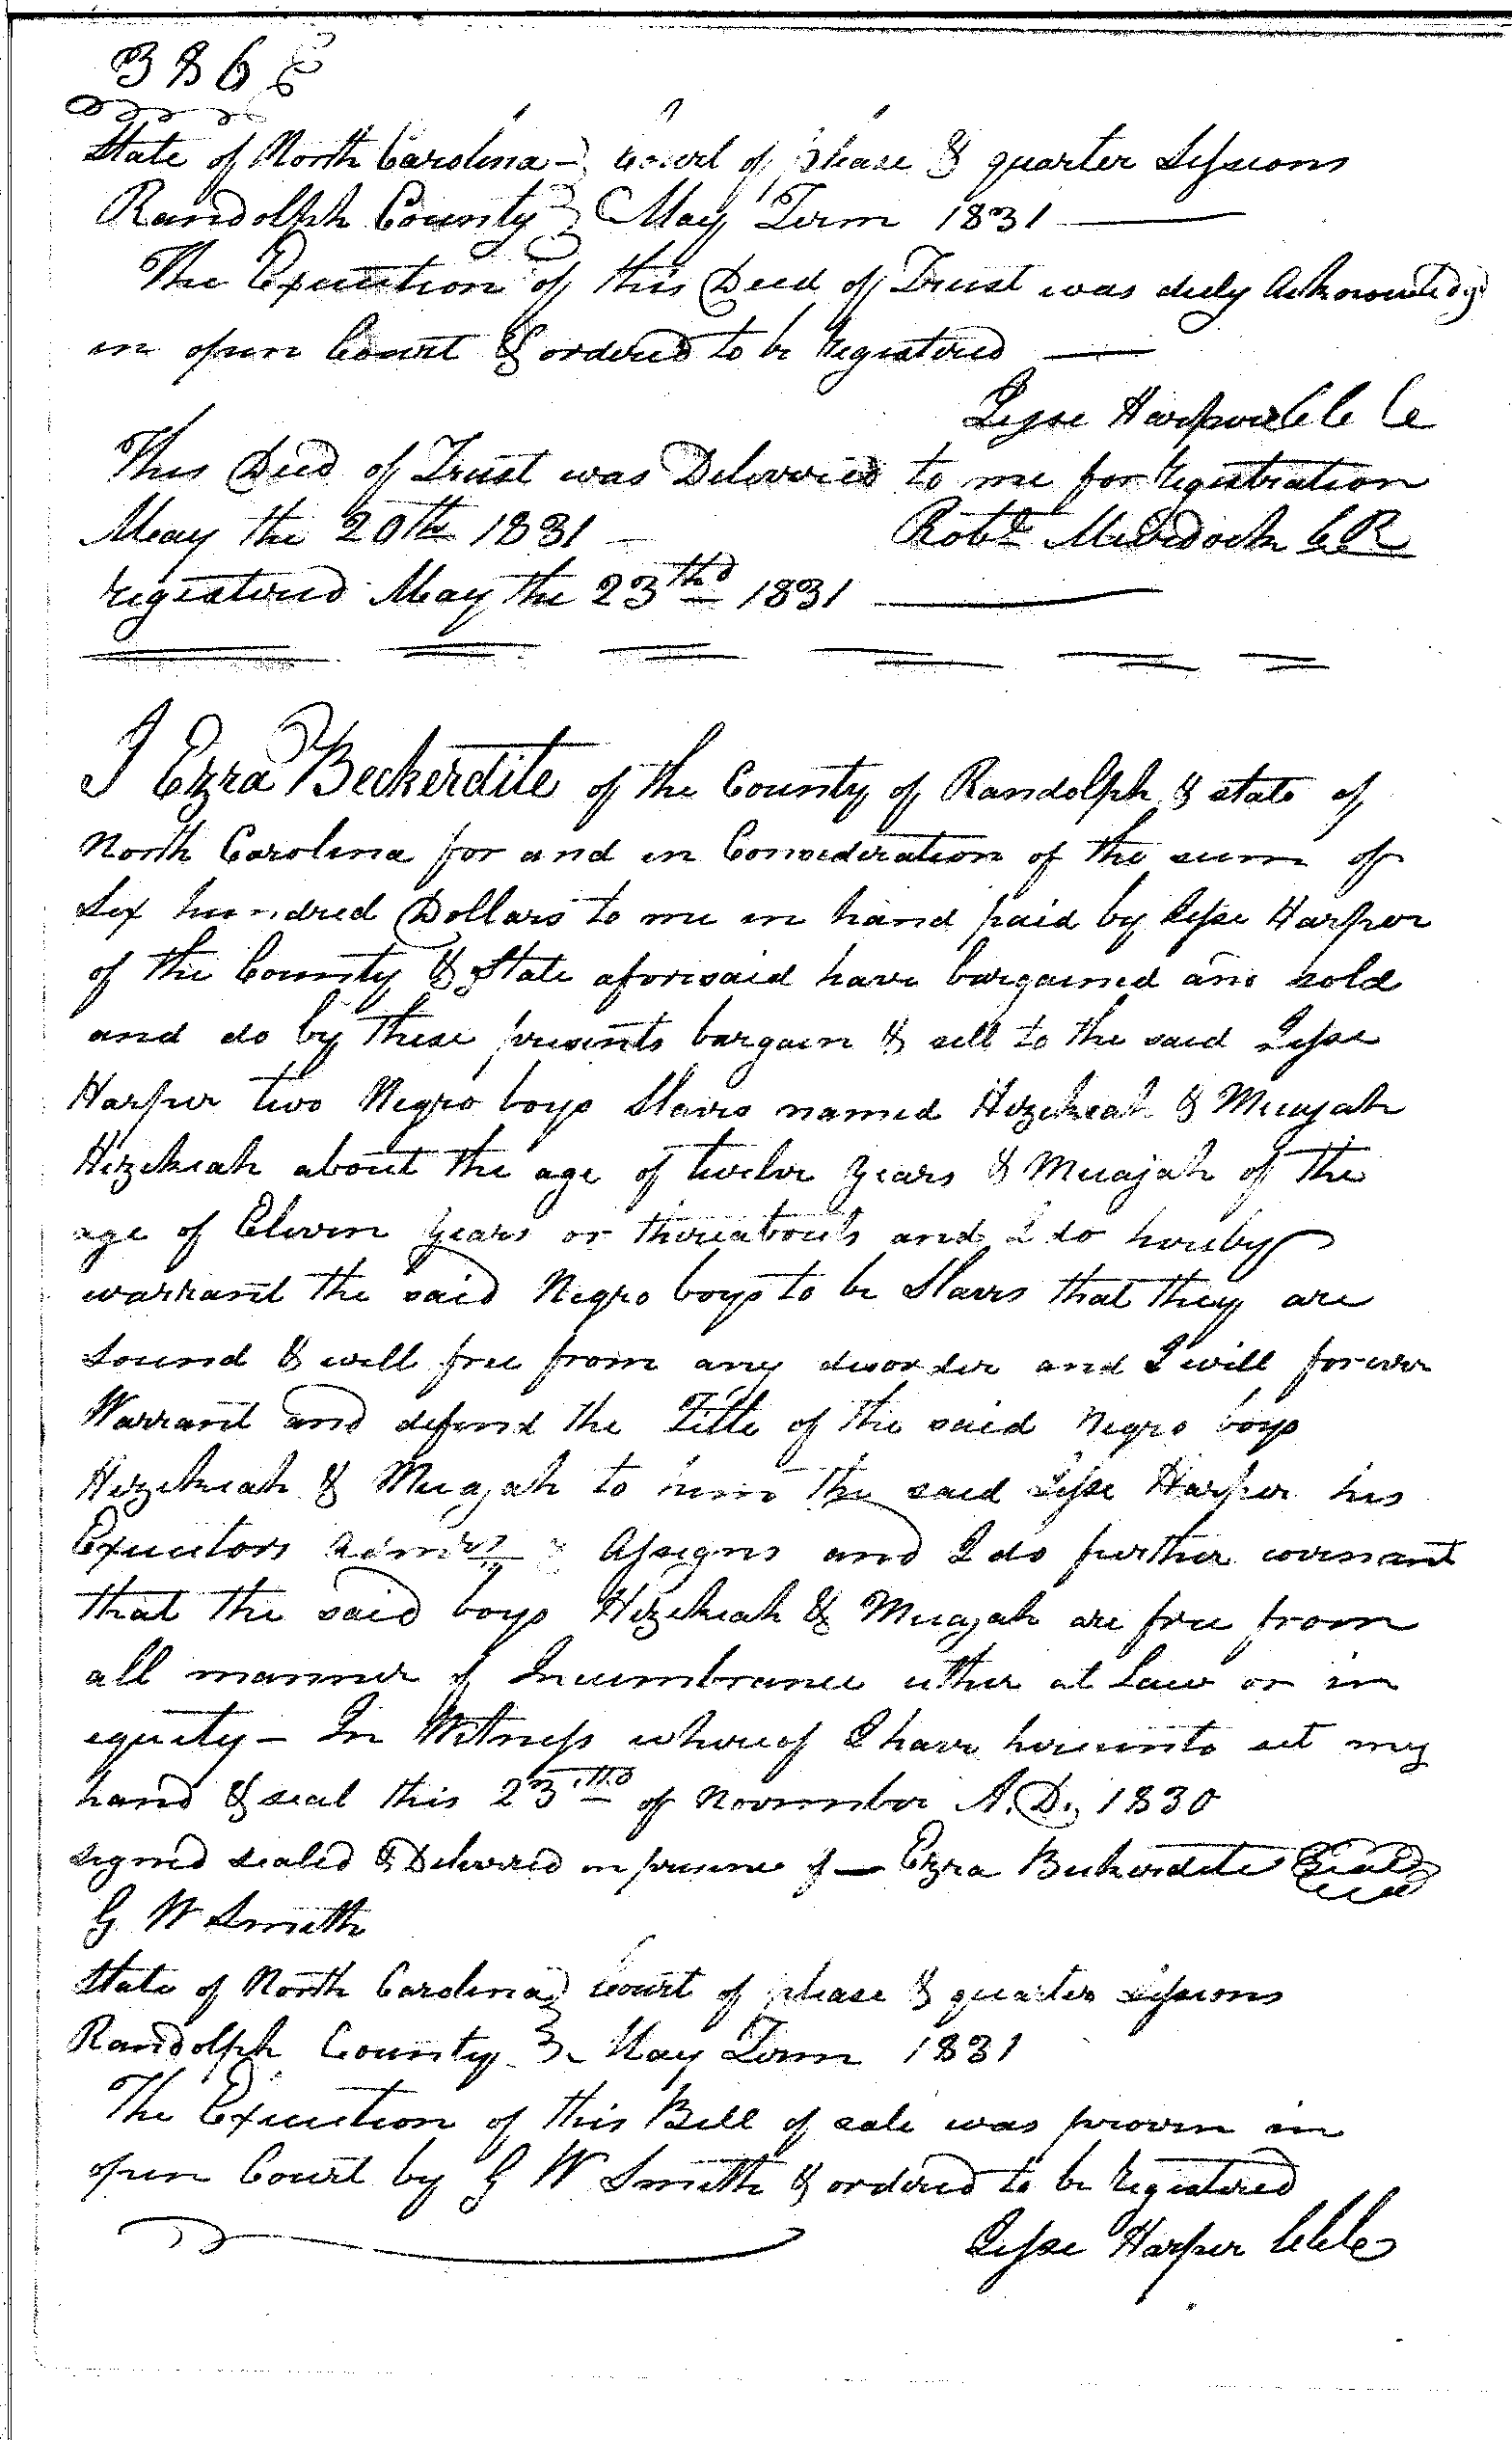 386
State of North Carolina - Court of please & quarter Sessions
Randolph County May Term 1831
The Execution of this Deed of Trust was duly Acknowledgd
in open Court & ordered to be registered
Jesse Harper C C C
This Deed of Trust was Deloveied to me for registration
May the 20th 1831 Robt Murdock C.R
registered May the 23thd 1831
I Ezra Beckerdite of the County of Randolph & state of
North Carolina for and in Consideration of the sum of
Six hundred Dollars to me in hand paid by Jesse Harper
of the County & State aforesaid have bargained and sold
and do by these presents bargain & sell to the said Jesse
Harper two Negro boys Slaves named Hezekeah & Micajah
Hezekeah about the age of twelve years & Micajah of the
age of Eleven years or thereabouts and I do hereby
warrant the said Negro boys to be Slaves that they are
Sound & well free from any disorder and I will forever
Warrant and defend the Title of the said Negro boys
Hezekeah & Micajah to him the said Jesse Harper his
Executors Admrs & Assigns and I do further covenant
that the said boys Hezekeah & Micajah are free from
all manner of Incumbrance either at Law or in
equity - In Witness whereof I have hereunto set my
hand & seal this 23thd of November A.D. 1830
signed sealed & Delivered in presence of - Ezra Beckerdite Seal
G W Smith
State of North Carolina Court of please & quarter Sessions
Randolph County May Term 1831
The Execution of this Bill of sale was proven in
open Court by G W Smith & ordered to be registered
Jesse Harper CCC